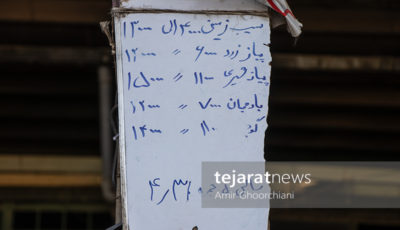 سیب زمینی ۴۰۰۰ الی ۱۳۰۰۰
پیاز زرد ۶۰۰۰ " ۱۲۰۰۰
پیاز شیری ۱۱۰۰۰ " ۱۵۰۰۰
بادمجان ۷۰۰۰ " ۱۲۰۰۰
گوجه ۸۰۰۰ " ۱۴۰۰۰
۴٫۳۶
tejaratnews
Amir Ghoorchiani